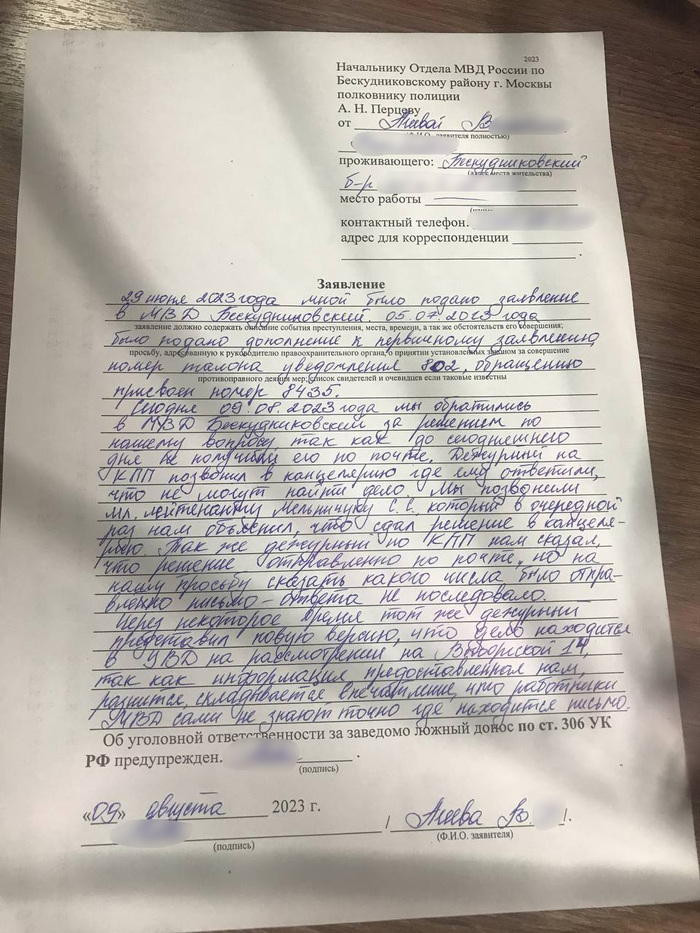 2023
Начальнику Отдела МВД России по
Бескудниковскому району г. Москвы
полковнику полиции
А. Н. Перцеву
от В
(Ф.И.О. заявителя полностью)
проживающего: Бескудниковский
(адрес места жительства)
б-р
место работы
контактный телефон.
адрес для корреспонденции
Заявление
29 июня 2023 года мной было подано заявление
в МВД Бескудниковский 05.07.2023 года
заявление должно содержать описание события преступления, места, времени, а так же обстоятельств его совершения;
было подано дополнение к первичному заявлению
просьбу, адресованную к руководителю правоохранительного органа, о принятии установленных законом за совершение
номер талона уведомления 802, обращению
противоправного деяния мер; список свидетелей и очевидцев если таковые известны
присвоен номер 8435.
Сегодня 09.08.2023 года мы обратились
в МВД Бескудниковский за решением по
нашему вопросу так как до сегодняшнего
дня не получили его по почте. Дежурный на
КПП позвонил в канцелярию где ему ответили,
что не могут найти дело. Мы позвонили
мл. лейтенанту Мельничуку С.С. который в очередной
раз нам объяснил, что сдал решение в канцеля-
рию. Так же дежурный по КПП нам сказал,
что решение отправленно по почте, но на
нашу просьбу сказать какого числа было отпра-
вленно письмо - ответа не последовало.
Через некоторое время тот же дежурный
представил новую версию, что дело находится
в УВД на рассмотрении на Выборгской 14,
так как информация предоставленная нам,
разнится, складывается впечатление, что работники
МВД сами не знают точно где находится письмо.
Об уголовной ответственности за заведомо ложный донос по ст. 306 УК
РФ предупрежден.
(подпись)
«09» августа 2023 г.
/ Агеева В. /.
(подпись) (Ф.И.О. заявителя)